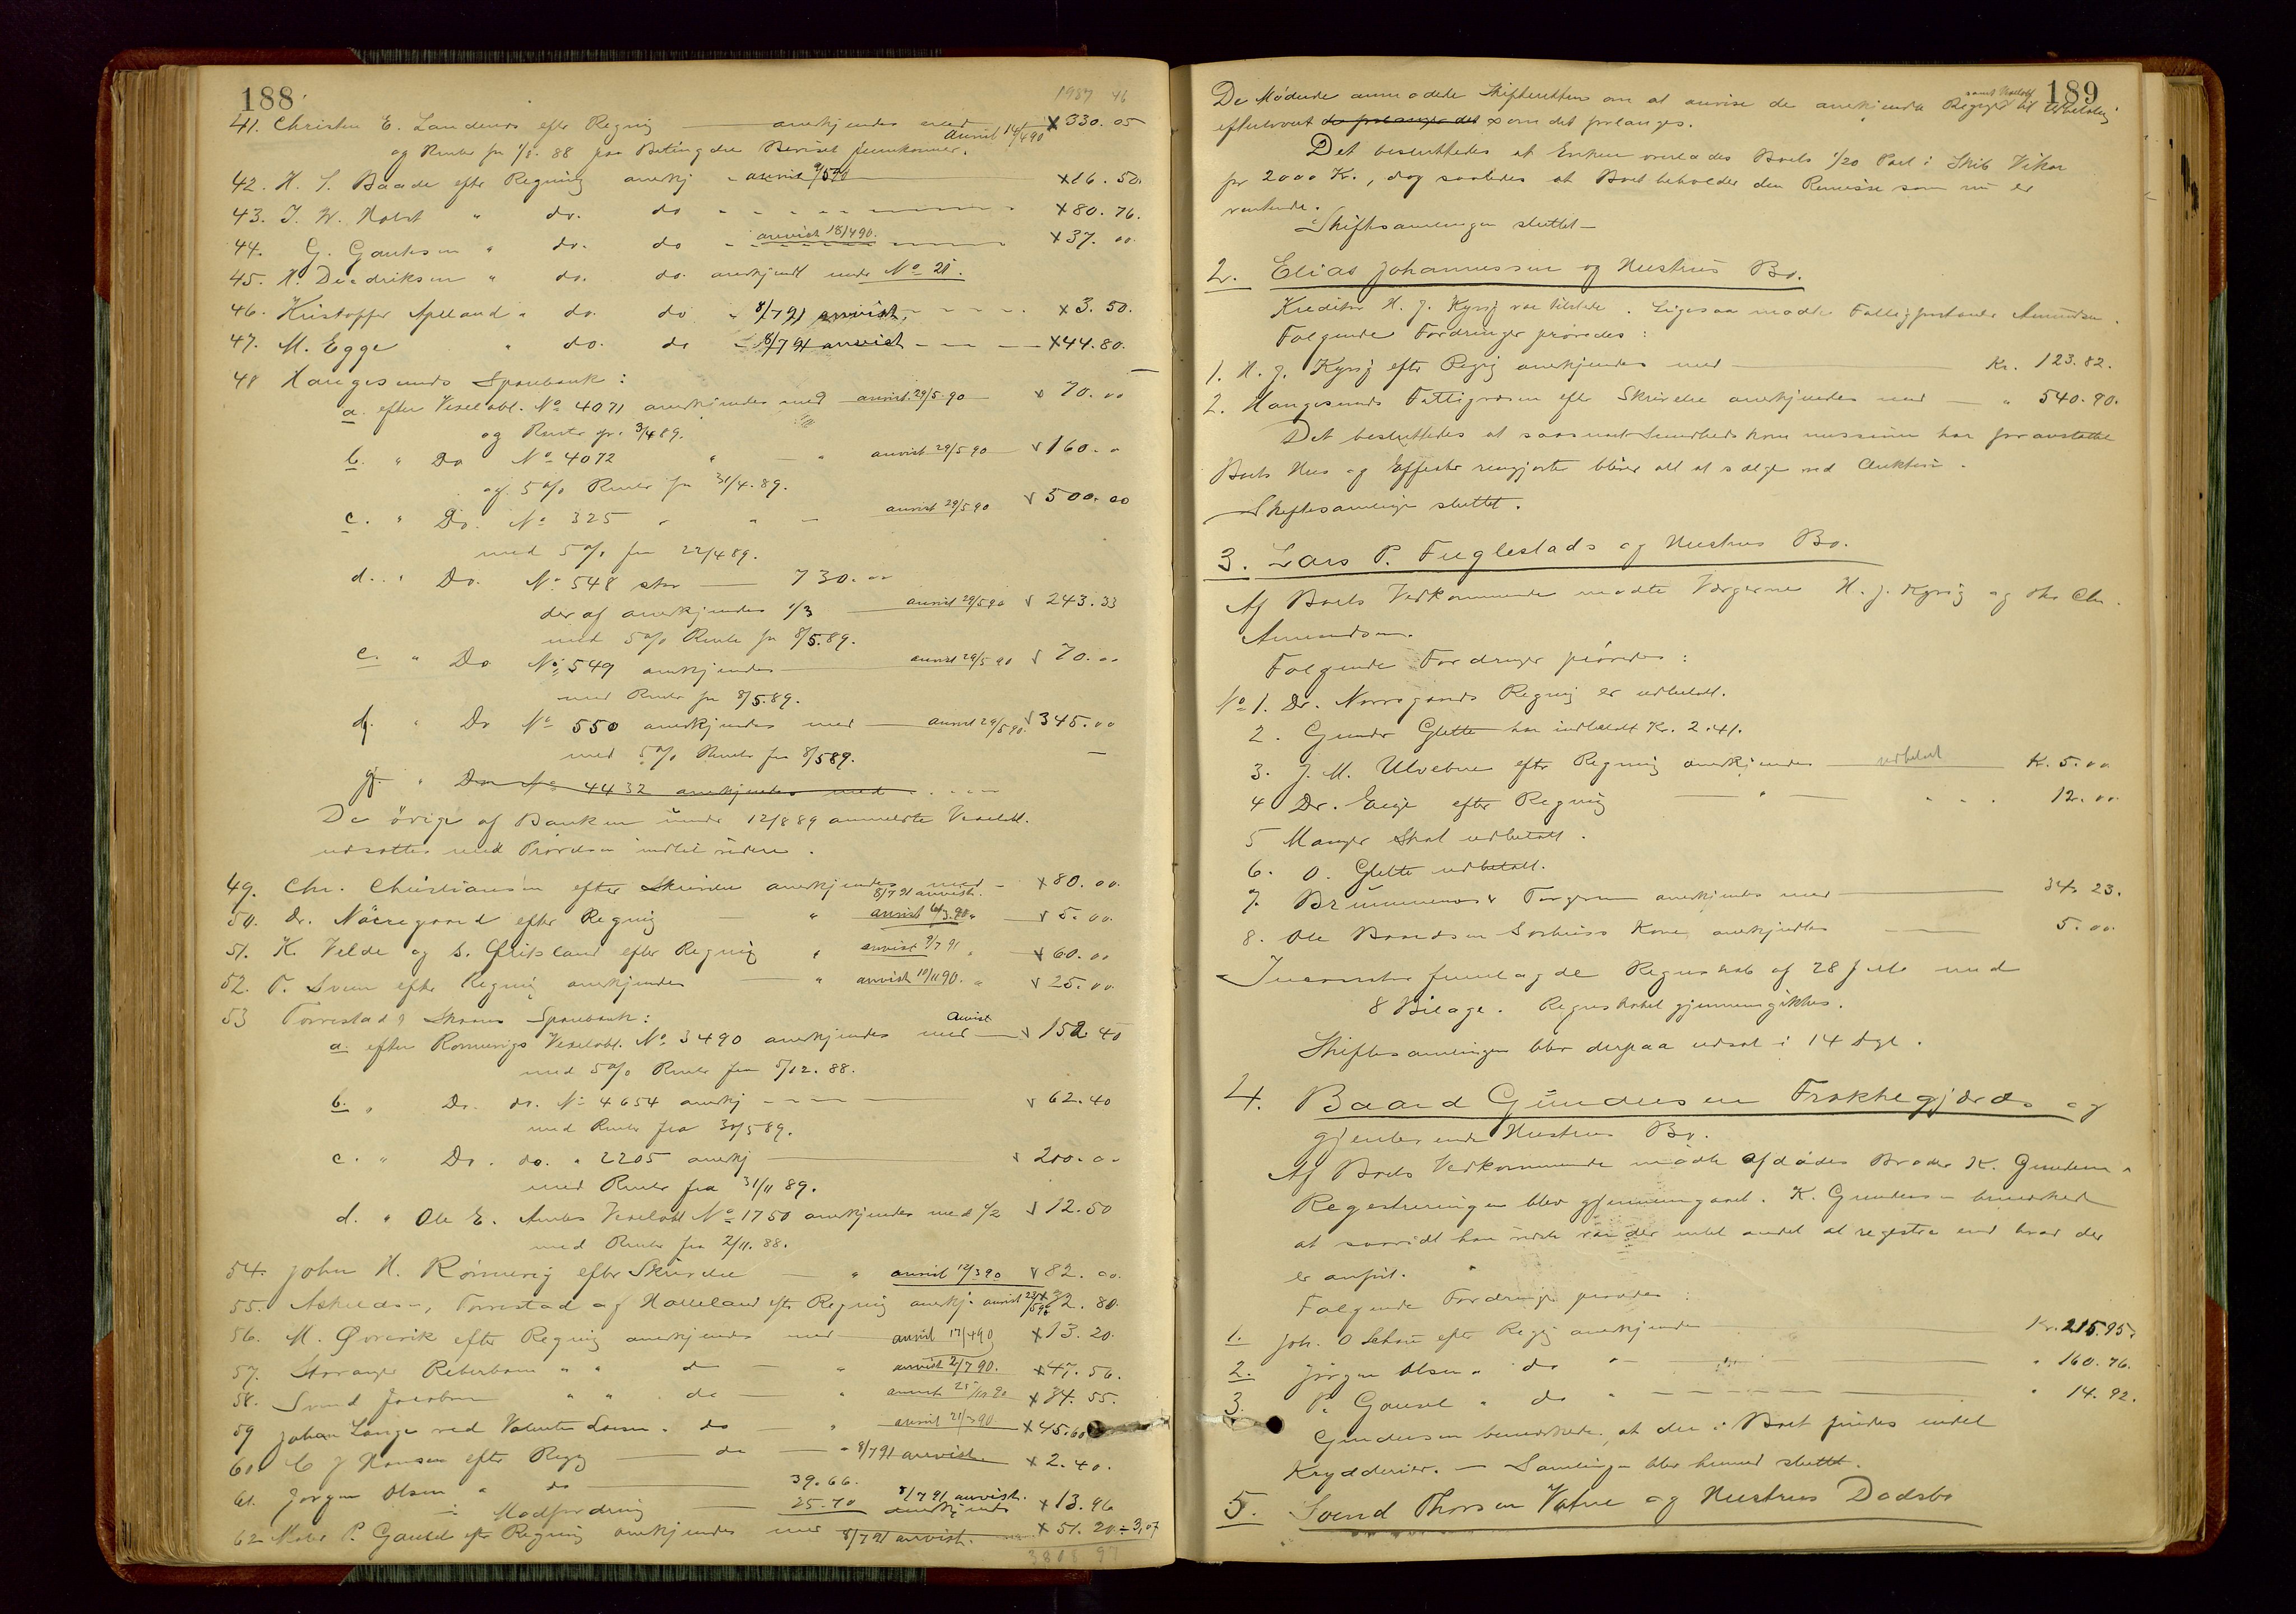 188
1987 46
41. Christen E. Landenes efter Regnig anerkjendes med x 330.05
og Renter fra 1/8. 88 paa Betingelse Beviset fremkommer. anvist 14/4 90
42. H. S. Baade efter Regning anerkj. anvist 9/5 90 x 16.50.
43. J. W. Holst " do. do x 80.76.
44. G. Gautesen " do. do anvist 18/4 90. x 37.00
45. H. Diedriksen " do. do. anerkjendt under No 21.
46. Kristoffer Apeland " do. do " 8/7 91 anvist. x 3.50.
47. M. Egge " do. do 8/7 91 anvist x 44.80.
48 Haugesunds Sparebank:
a. efter Vexelobl. No 4071 anerkjendes med anvist 29/5 90 x 70.00
og Renter fr. 3/4 89.
b. " Do No 4072 " anvist 29/5 90 160.00
og 5 % Renter fra 31/4. 89.
c. " Do. No 325 " anvist 29/5 90 500.00
med 5 % fra 22/4 89.
d. " Do. No 548 stor 730.00
deraf anerkjendes 1/3 anvist 29/5 90 243.33
med 5 % Rente fra 8/5. 89.
e. " Do No 549 anerkjendes anvist 29/5 90 70.00
med Renter fra 8/5. 89.
f. " Do No 550 anerkjendes med anvist 29/5 90. 345.00
med 5 % Renter fra 8/5 89.
g. " Do No 4432 anerkjendes med
De övrige af Banken under 12/8 89 anmeldte Vexelobl.
udsattes med Prövelsen indtil videre.
49. Chr. Christiansen efter Skrivelse anerkjendes med 8/7 91 anvist. x 80.00.
50. Dr. Nörregaard efter Regnig " anvist 6/3. 90 " 5.00.
51. K. Velde og S. Østisland efter Regnig " anvist 9/7 91 " x 60.00
52. T. Svum efter Regnig anerkjendes " anvist 10/11 90. " 25.00
53 Torvestad & Skaare Sparebank:
a. efter Rönnevigs Vexelobl. No 3490 anerkjendes med anvist 152 40
med 5 % Renter fra 5/12. 88.
b. " Do. do. No 4654 anerkj 62.40
med Renter fra 30/5 89.
c. " Do. do. " 2205 anerkj 200.00
med Renter fra 31/11 89.
d. " Ole E. Vexelobl No 1750 anerkjendes med 1/2 12.50
med Renter fra 2/11. 88.
54. John H. Rönnevig efter Skrivelse " anvist 12/3 90 82.00.
55. Askildsen, Torvestad af Haaeland eft Regnig anerkj. anvist 23/5 90 x 32.80.
56. M. Qvrevik efter Regnig anerkjendes med anvist 17/4 90 x 13.20.
57. Stavanger Reberbane " " do " anvist 2/7 90. x 47.56.
58. Svend Jacobsen " " do " anvist 25/10 90 x 34.55.
59 Johan Lange ved Valentin " do " anvist 21/3 90. x 45.60
60 C J Hansen efter Regg do " 8/7 91 anvist. x 2.40.
61. Jorgen Olsen " do 39.66.
÷ Modfordring 25.70 8/7 91 anvist. anerkjendes x 13.96
62 P. Gausel eft Regning anerkjendes med 8/7 91 anvist. x 51.20 ÷ 3,07
3808 97
189
De Mödende anmodede Skifteretten om at anvise de anerkjendte Regngr samt til Udbetaling
efterhvert de forlanges det som det forlanges.
Det besluttedes at Enken overlades Boets 1/20 Part i Skib Vikar
for 2000 Kr., dog saaledes at Boet beholder den Remisse som nu er
ventende.
Skiftesamlingen sluttet –
2. Elias Johannessen og Hustrus Bo.
Kreditor H. J. Kyvig var tilstede. Ligesaa mødte Fattigforstander Amundsen.
Følgende Fordringer prøvedes:
1. H. J. Kyvig efter Regng anerkjendes med Kr. 123.82.
2. Haugesunds Fattigvæsen efter Skrivelse anerkjendes med " 540.90.
Det besluttedes at saasnart Sundhedskommissionen har foranstaltet
Boets Hus og Effekter rengjorte bliver alt at sælge ved Auktion.
Skiftesamlingen sluttet.
3. Lars P. Fuglestads og Hustrus Bo.
Af Boets Vedkommende mødte Værgerne H. J. Kyvig og Chr.
Amundsen.
Følgende Fordringer prøvedes:
No 1. Dr. Nørregaards Regnig er udbetalt.
2. Gunder Glette har indbetalt Kr. 2.41.
3. J. M. Ulvebne eftr Regning anerkjendes udbetalt K. 5.00
4 Dr. Eeije efter Regnig " 12.00
5 Manger Skat udbetalt.
6. O. Glette udbetalt.
7. Brummenæs & Torgersen anerkjendes med 34. 23.
8. Ole Baardsen Kone anerkjendtes 5.00.
fremlagde Regnskab af 28 Juli med
8 Bilage. Regnskabet gjennemgikkes.
Skiftesamlingen blev derpaa udsat i 14 Dge.
4. Baard Gundersen Frakkegjærds og
gjenlevende Hustrus Bo.
Af Boets Vedkommende mødte afdødes Broder K. Gundersen.
Registreringen blev gjennemgaaet. K. Gundersen bemærkede
at saavidt han vidste var der intet andet at registrere end hvad der
er anført.
Følgende Fordringer prøvedes:
1. Joh. O Schau efter Regg anerkjendes Kr. 215.95.
2. Jörgen Olsen " do " 160.76.
3. P. Gausel " do " 14.92.
Gundersen bemærkede, at der i Boet findes endel
Krydderier. – Samlingen blev hermed sluttet.
5. Svend Thorsen Vatne og Hustrus Dødsbo